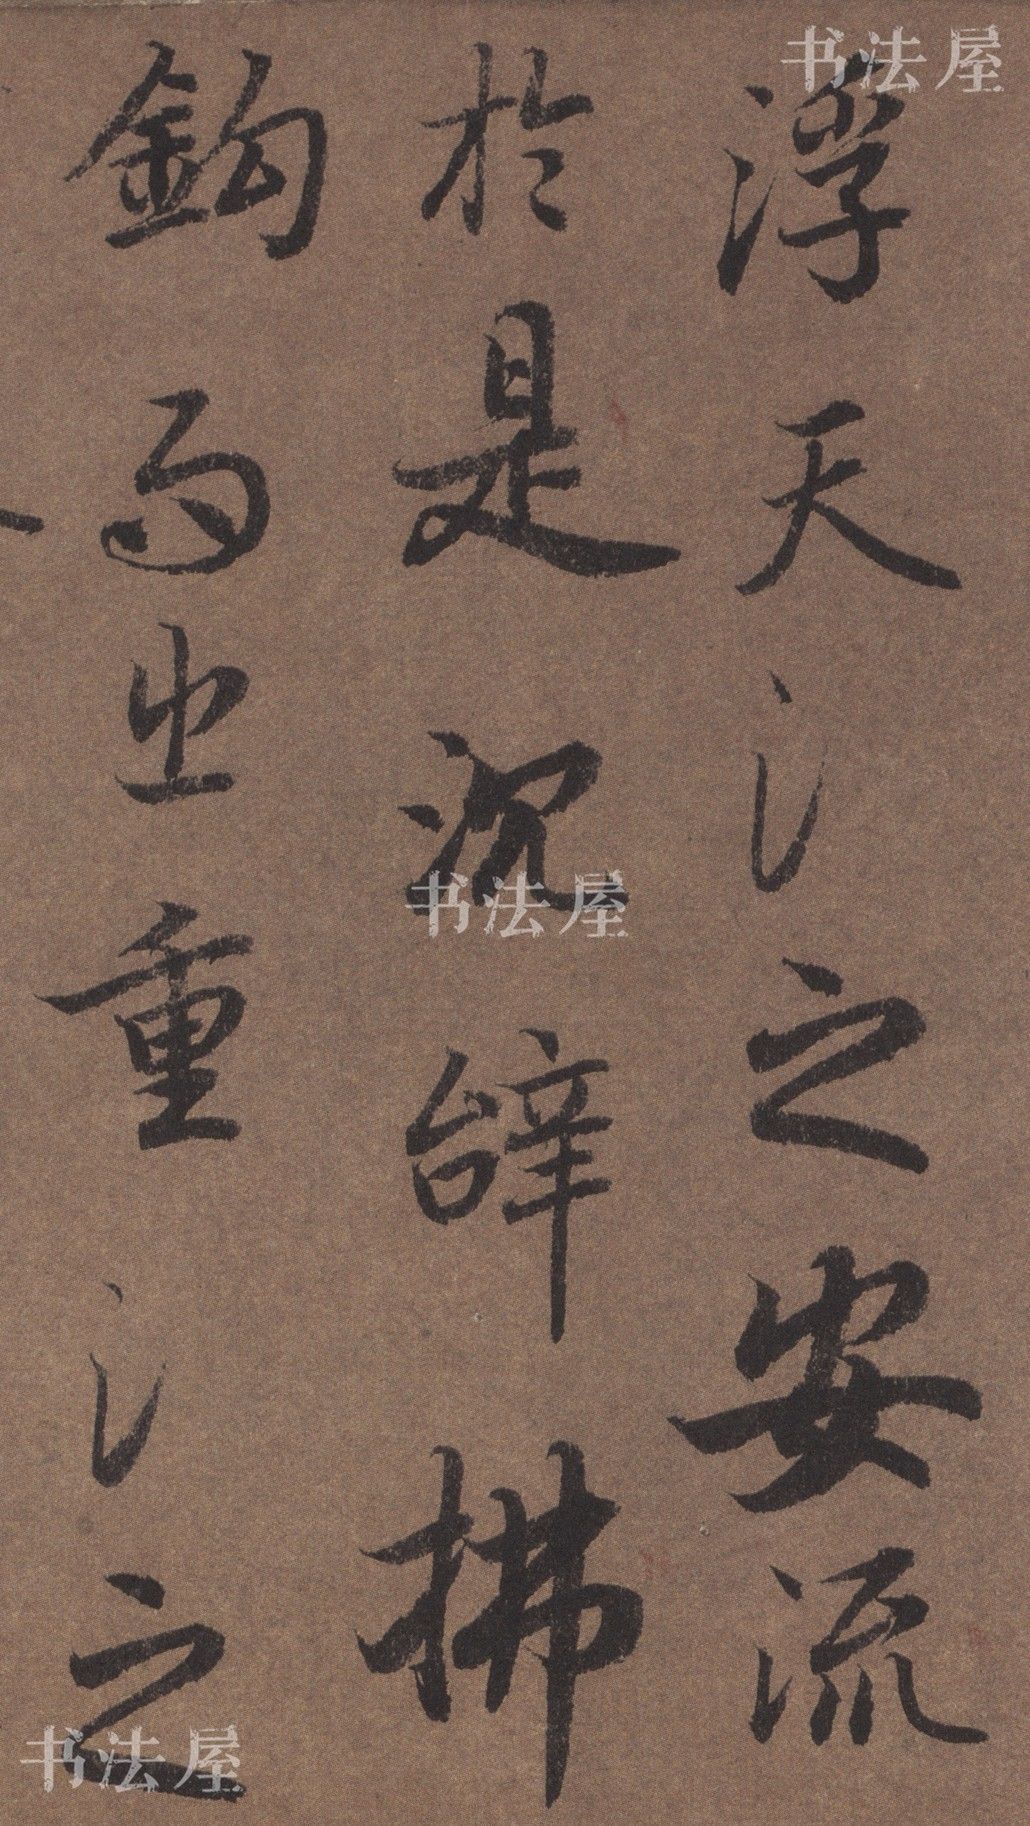 书法屋
浮天淵之安流
於是沉辝拂
书法屋
鉤而出重淵之
书法屋